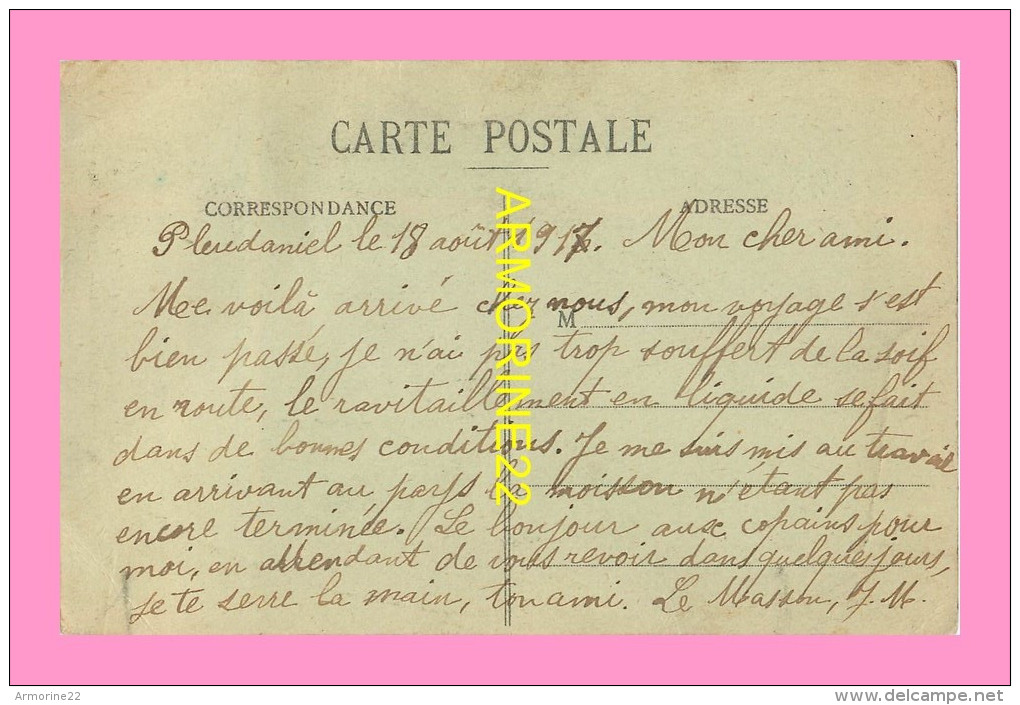 CARTE POSTALE
CORRESPONDANCE
ADRESSE
Pleudaniel le 18 août 1917. Mon cher ami.
Me voilà arrivé chez nous, mon voyage s'est
M
bien passé, je n'ai pas trop souffert de la soif
en route, le ravitaillement en liquide se fait
dans de bonnes conditions. Je me suis mis au travail
en arrivant au pays la moisson n'étant pas
encore terminée. Le bonjour aux copains pour
moi, en attendant de vous revoir dans quelques jours,
je te serre la main, ton ami. Le Masson, J. M.
ARMORINE22
Armorine22
www.delcampe.net